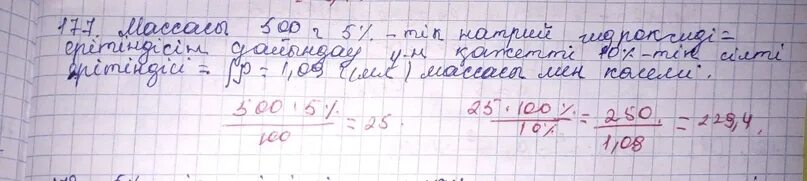 177. Массасы 500 г 5% -тік натрий гидроксиді =
ерітіндісін дайындау үшін қажетті 10% -тік сілті
ерітіндісі = ρ = 1,09 (мл) массасы мен көлемі.
500 · 5% / 100 = 25. 25 · 100% / 10% = 250 / 1,09 = 229,4.